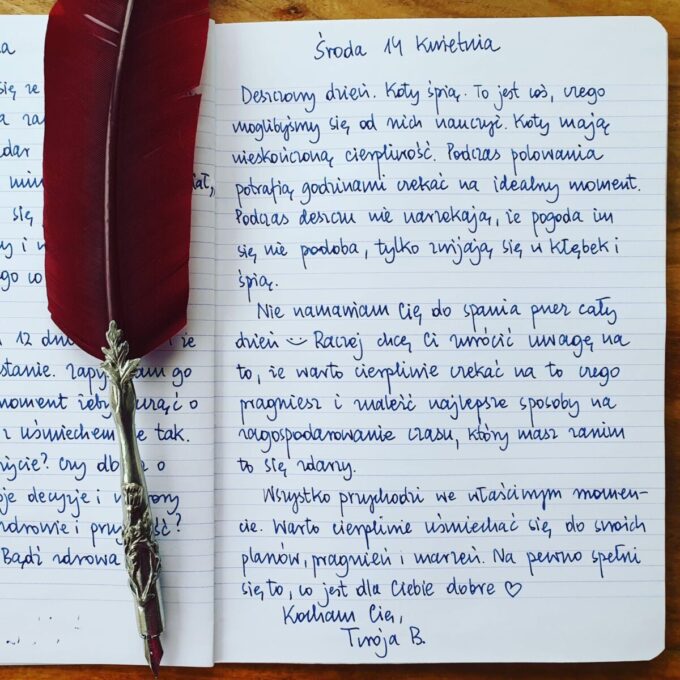 Środa 14 kwietnia
Deszczowy dzień. Koty śpią. To jest coś, czego
moglibyśmy się od nich nauczyć. Koty mają
nieskończoną cierpliwość. Podczas polowania
potrafią godzinami czekać na idealny moment.
Podczas deszczu nie narzekają, że pogoda im
się nie podoba, tylko zwijają się w kłębek i
śpią.
Nie namawiam Cię do spania przez cały
dzień Raczej chcę Ci zwrócić uwagę na
to, że warto cierpliwie czekać na to czego
pragniesz i znaleźć najlepsze sposoby na
zagospodarowanie czasu, który masz zanim
to się zdarzy.
Wszystko przychodzi we właściwym momen-
cie. Warto cierpliwie uśmiechać się do swoich
planów, pragnień i marzeń. Na pewno spełni
się to, co jest dla Ciebie dobre ♡
Kocham Cię,
Twoja B.
się ze
12
stanie.
go
moment żeby
o
z uśmiechem
tak.
czy
o
decyzje i
zdrowie i
Bądź zdrowa